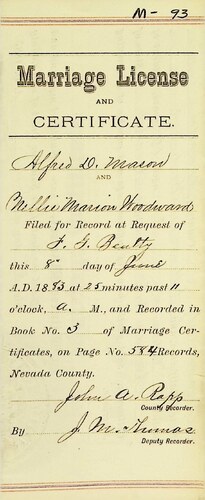 M - 93
Marriage License
AND
CERTIFICATE.
Alfred D. Mason
AND
Nellie Marion Woodward
Filed for Record at Request of
F. G. Beatty
this 8" day of June
A.D. 1893 at 25 minutes past 11
o'clock, A. M., and Recorded in
Book No. 3 of Marriage Cer-
tificates, on Page No. 584 Records,
Nevada County.
John A. Rapp
County Recorder.
By J. M. Thomas
Deputy Recorder.